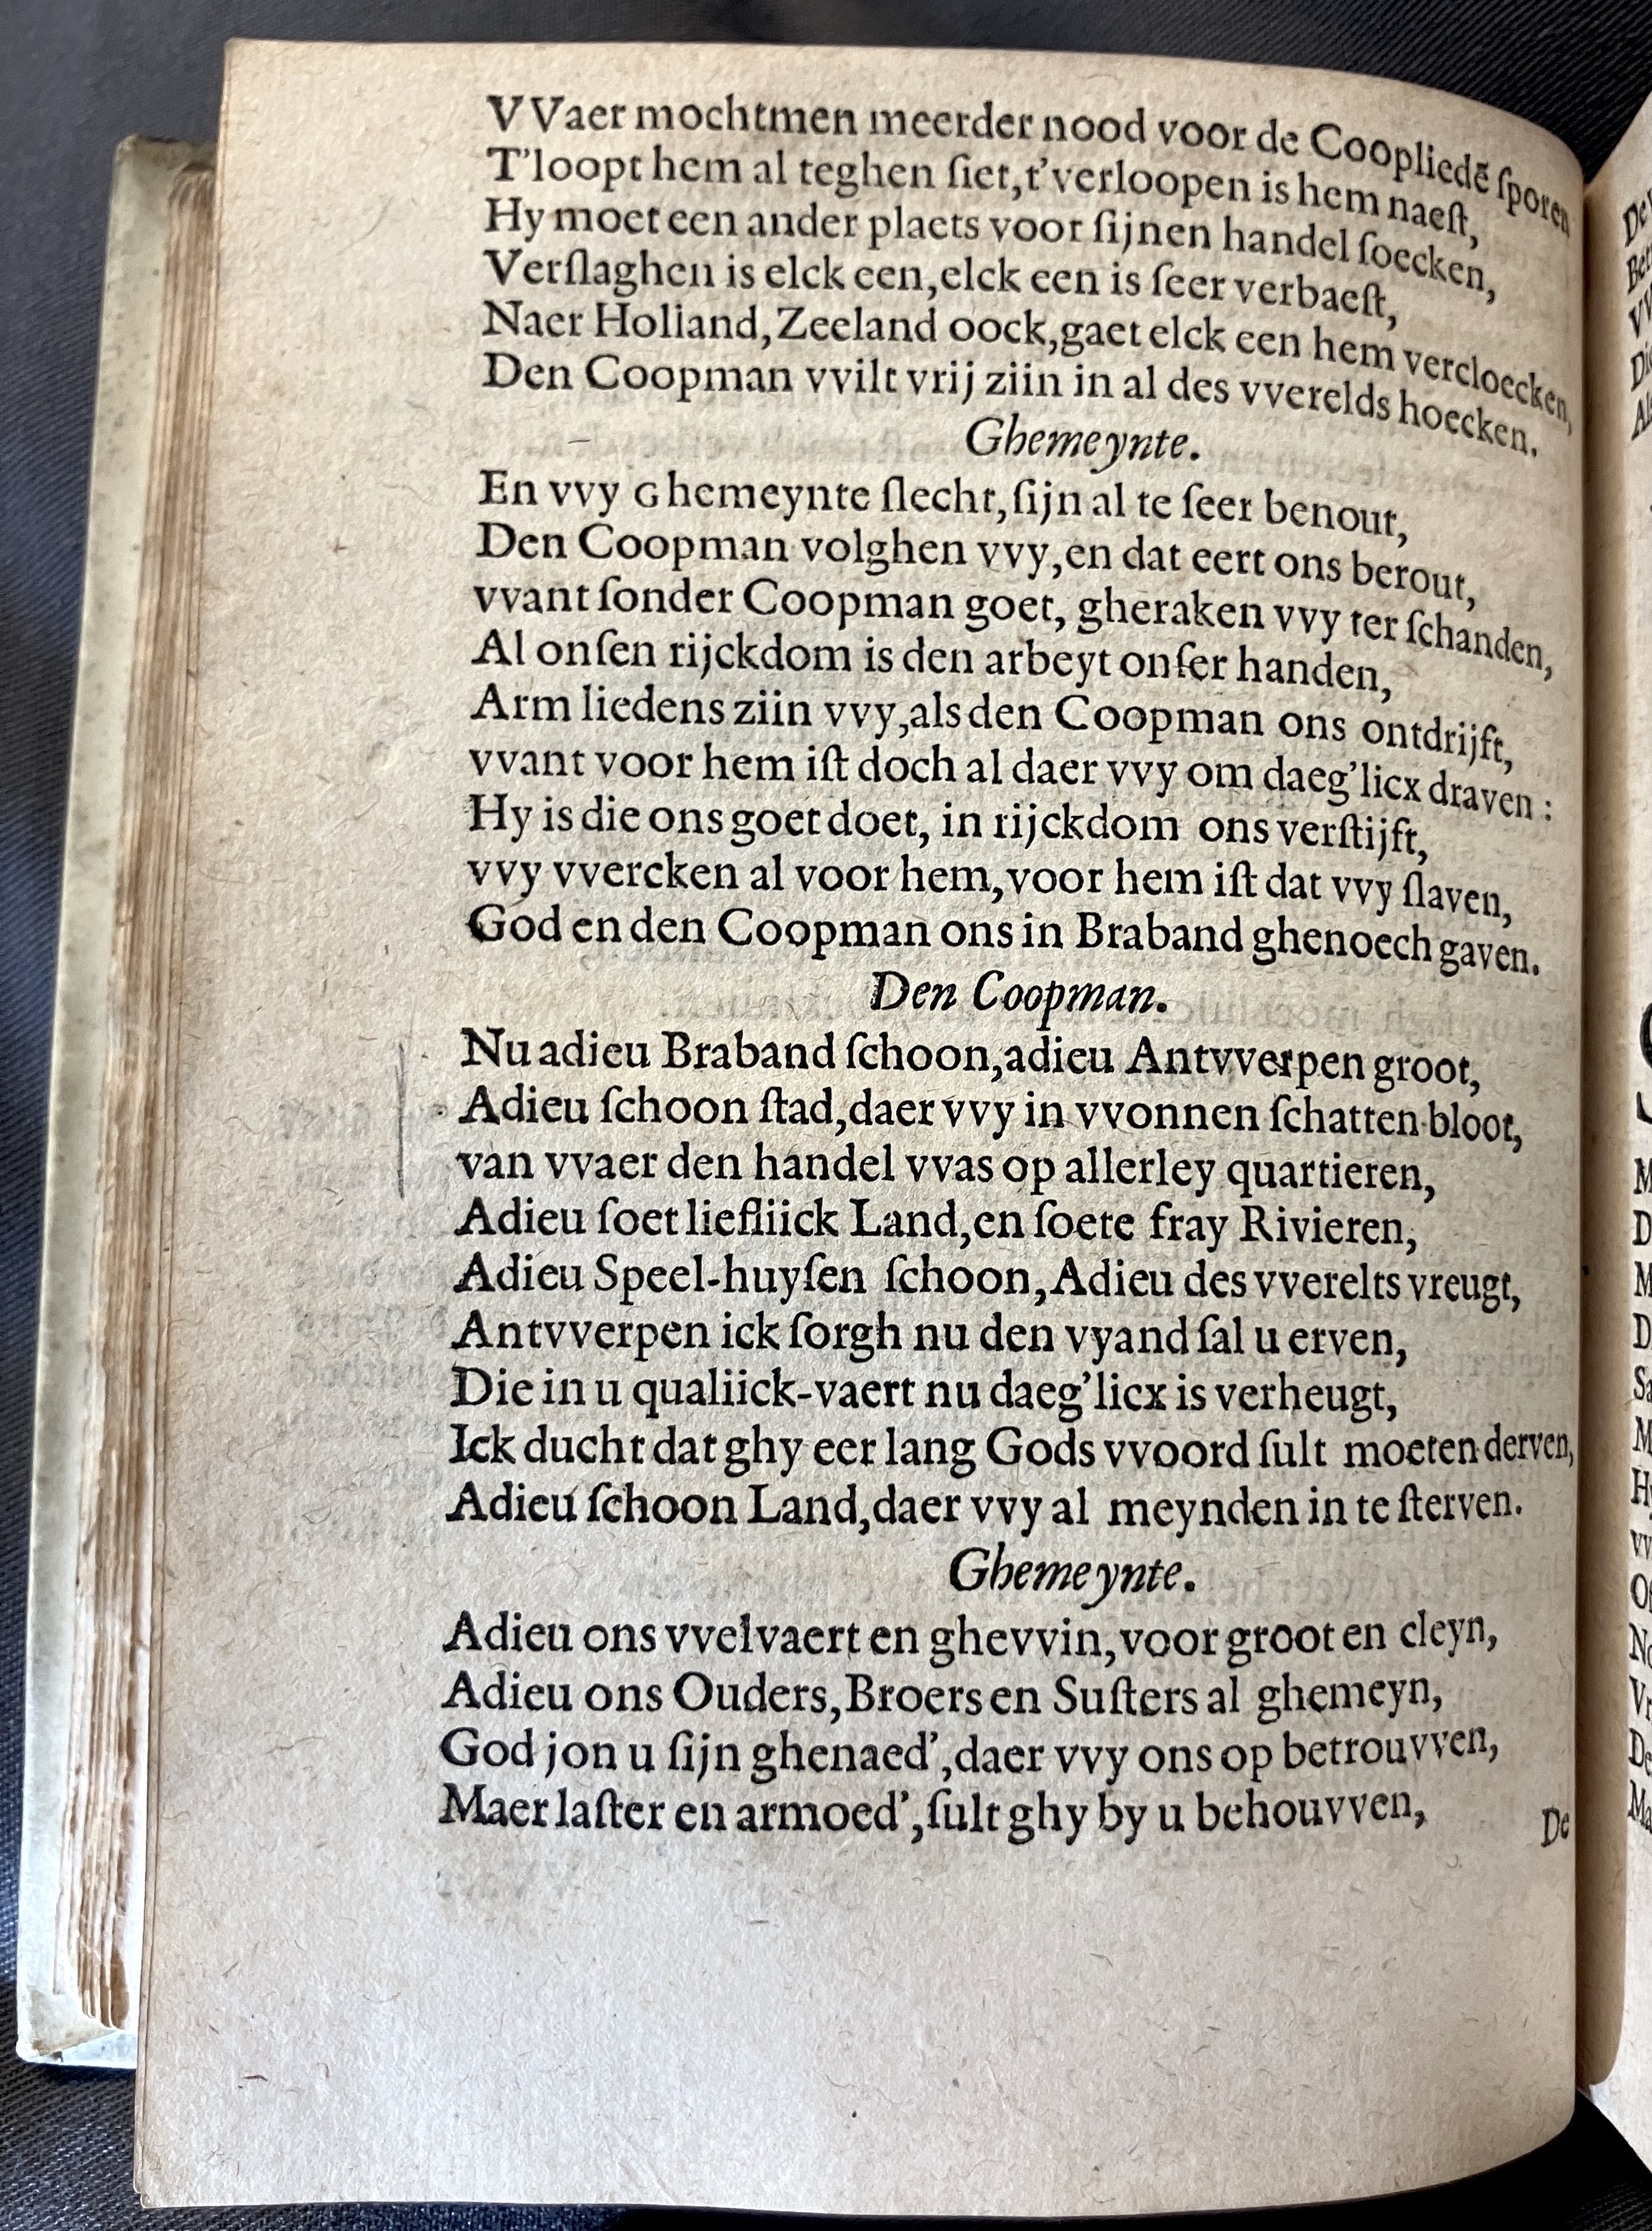 VVaer mochtmen meerder nood voor de Coopliedē ſporen
T'loopt hem al teghen ſiet,t'verloopen is hem naeſt,
Hy moet een ander plaets voor ſijnen handel ſoecken,
Verſlaghen is elck een,elck een is ſeer verbaeſt,
Naer Holland,Zeeland oock,gaet elck een hem vercloecken,
Den Coopman vvilt vrij ziin in al des vverelds hoecken.
Ghemeynte.
En vvy Ghemeynte ſlecht,ſijn al te ſeer benout,
Den Coopman volghen vvy,en dat eert ons berout,
vvant ſonder Coopman goet, gheraken vvy ter ſchanden,
Al onſen rijckdom is den arbeyt onſer handen,
Arm liedens ziin vvy,als den Coopman ons ontdrijft,
vvant voor hem iſt doch al daer vvy om daeg'licx draven :
Hy is die ons goet doet, in rijckdom ons verſtijft,
vvy vvercken al voor hem,voor hem iſt dat vvy ſlaven,
God en den Coopman ons in Braband ghenoech gaven.
Den Coopman.
Nu adieu Braband ſchoon,adieu Antvverpen groot,
Adieu ſchoon ſtad,daer vvy in vvonnen ſchatten bloot,
van vvaer den handel vvas op allerley quartieren,
Adieu ſoet liefliick Land,en ſoete fray Rivieren,
Adieu Speel-huyſen ſchoon,Adieu des vverelts vreugt,
Antvverpen ick ſorgh nu den vyand ſal u erven,
Die in u qualiick-vaert nu daeg'licx is verheugt,
Ick ducht dat ghy eer lang Gods vvoord ſult moeten derven,
Adieu ſchoon Land,daer vvy al meynden in te ſterven.
Ghemeynte.
Adieu ons vvelvaert en ghevvin,voor groot en cleyn,
Adieu ons Ouders,Broers en Suſters al ghemeyn,
God jon u ſijn ghenaed',daer vvy ons op betrouvven,
Maer laſter en armoed',ſult ghy by u behouvven,
De